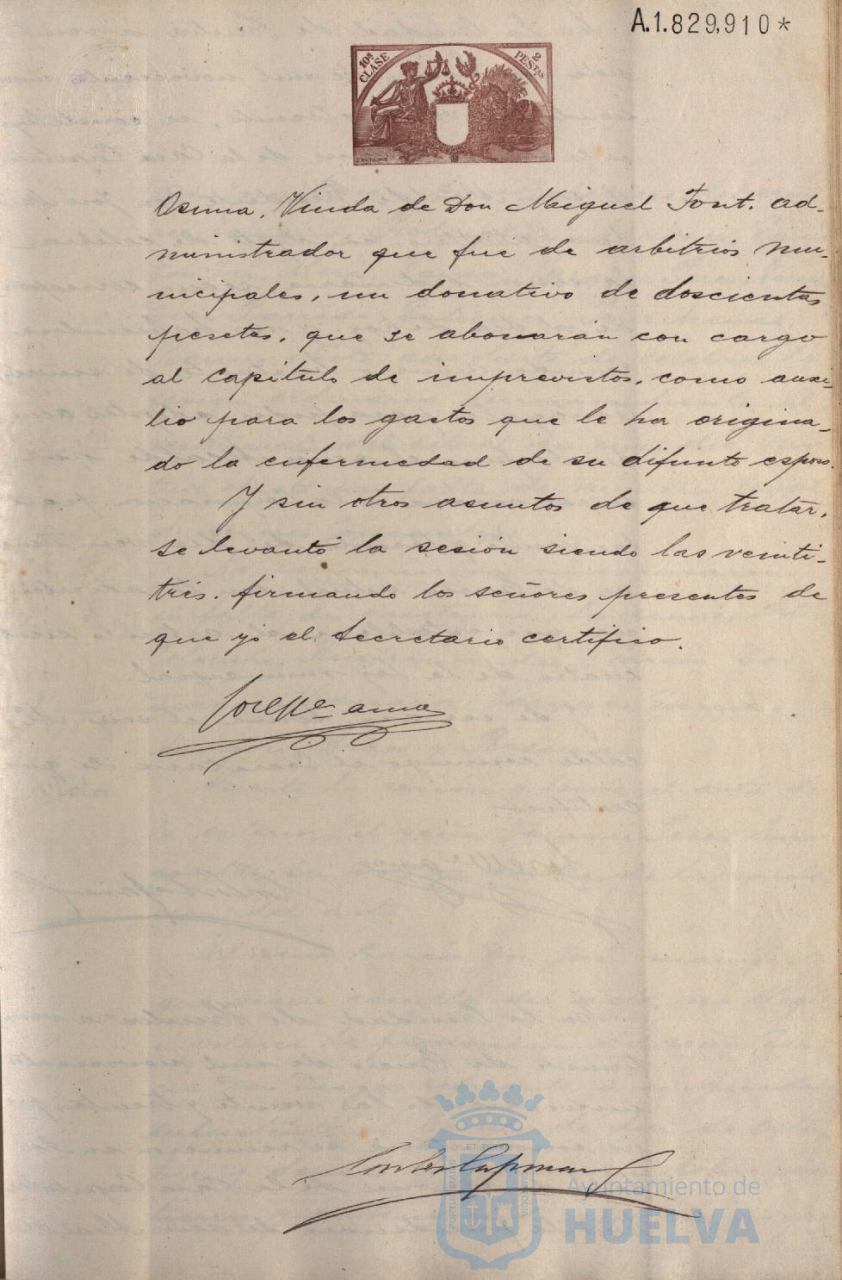 A.1.829,910*
10ª CLASE
2 PESTAS
Osuna, Viuda de Don Miguel Font, ad-
ministrador que fue de arbitrios mu-
nicipales, un donativo de doscientas
pesetas, que se abonarán con cargo
al capítulo de imprevistos, como auxi-
lio para los gastos que le ha origina-
do la enfermedad de su difunto esposo.
Y sin otros asuntos de que tratar,
se levantó la sesión siendo las veinti-
trés, firmando los señores presentes de
que yo el Secretario certifico.
Ayuntamiento de
HUELVA